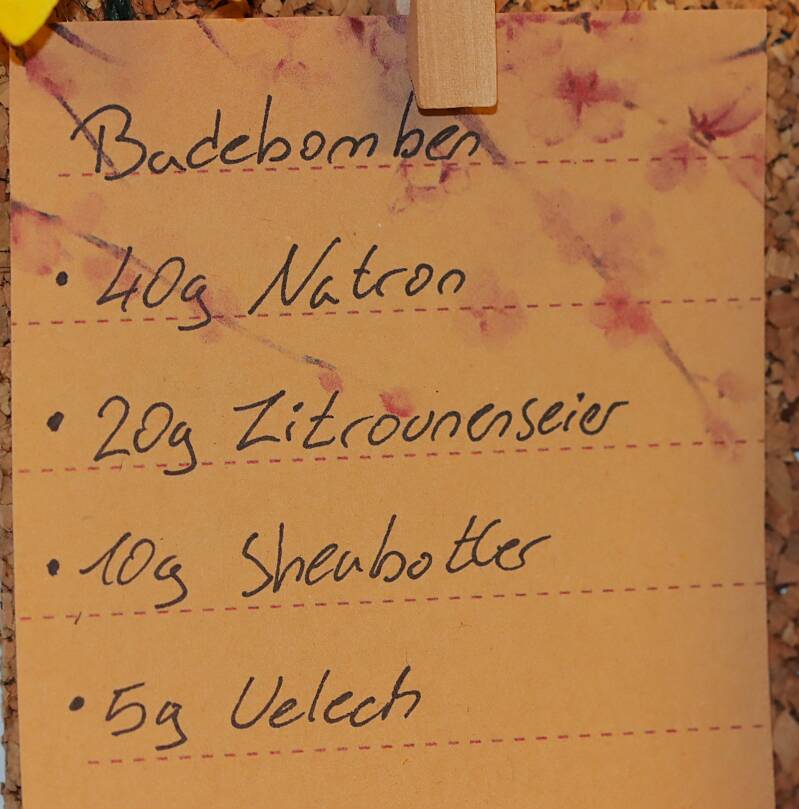 Badebomben
• 40g Natron
• 20g Zitrounenseier
• 10g Sheabotter
• 5g Uelech